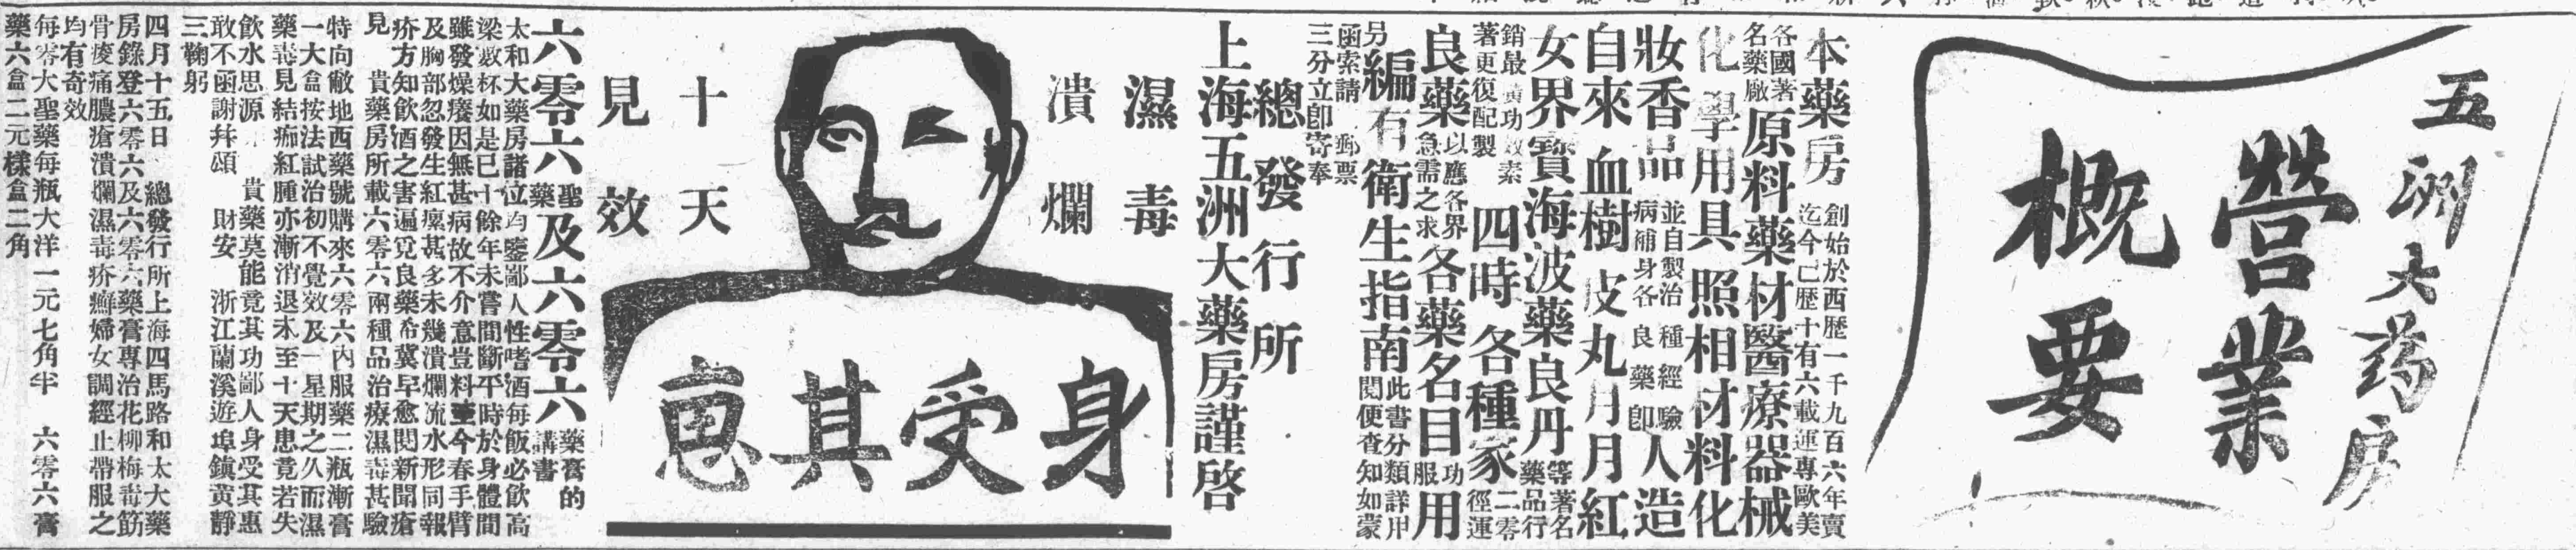 五洲大药房
營業
概要
本藥房創始於西歷一千九百六年賣
迄今已歷十有六載運專歐美
各國著
名藥廠原料藥材醫療器械
化學用具照相材料化
妝香品並自製治種經驗人造
病補身各良藥卽
自來血樹皮丸月月紅
女界寶海波藥良丹等著名
藥品行
銷最廣功效素
著更復配製四時各種家二零
徑運
良藥以應各界
急需之求各藥名目功
服用
另編有衛生指南此書分類詳用
閱便查知如蒙
函索請郵票
三分立卽寄奉
總發行所
上海五洲大藥房謹啓
濕毒
潰爛
十天
見效
身受其惠
六零六聖
藥及六零六藥膏的
講書
太和大藥房諸位均鑒鄙人性嗜酒每飯必飲高
梁數杯如是已十餘年未嘗間斷平時於身體間
雖發燥癢因無甚病故不介意豈料至今春手臂
及胸部忽發生紅瘰甚多未幾潰爛流水形同報
疥方知飲酒之害遍覓良藥希冀早愈閱新聞瘡
見 貴藥房所載六零六兩種品治療濕毒甚驗
特向敝地西藥號購來六零六內服藥二瓶漸膏
一大盒按法試治初不覺效及一星期之久而濕
藥毒見結痂紅腫亦漸消退未至十天患竟若失
飲水思源 貴藥莫能竟其功鄙人身受其惠
敢不函謝幷頌 財安 浙江蘭溪遊埠鎮黃靜
三鞠躬
四月十五日 總發行所上海四馬路和太大藥
房錄登六零六及六零六藥膏專治花柳梅毒筋
骨痠痛膿瘡潰爛濕毒疥癬婦女調經止帶服之
均有奇效
每零大聖藥每瓶大洋一元七角半 六零六膏
藥六盒二元樣盒二角